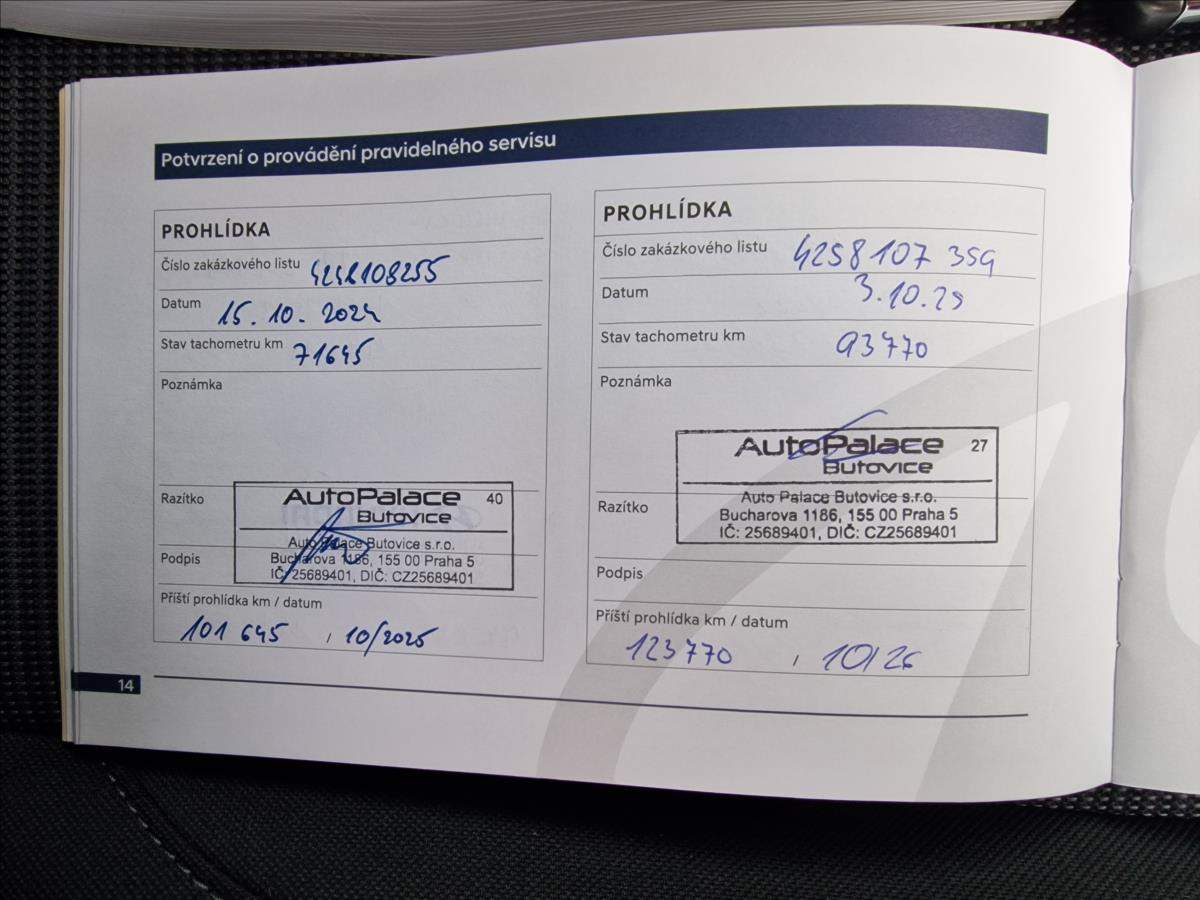 Potvrzení o provádění pravidelného servisu
PROHLÍDKA
Číslo zakázkového listu 4248108255
Datum 15. 10. 2024
Stav tachometru km 71645
Poznámka
Razítko
AutoPalace 40
Butovice
Auto Palace Butovice s.r.o.
Bucharova 1186, 155 00 Praha 5
IČ: 25689401, DIČ: CZ25689401
Podpis
Příští prohlídka km / datum
101 645 / 10/2025
PROHLÍDKA
Číslo zakázkového listu 4258107359
Datum 3.10.25
Stav tachometru km 93770
Poznámka
AutoPalace 27
Butovice
Razítko
Auto Palace Butovice s.r.o.
Bucharova 1186, 155 00 Praha 5
IČ: 25689401, DIČ: CZ25689401
Podpis
Příští prohlídka km / datum
123770 / 10/26
14